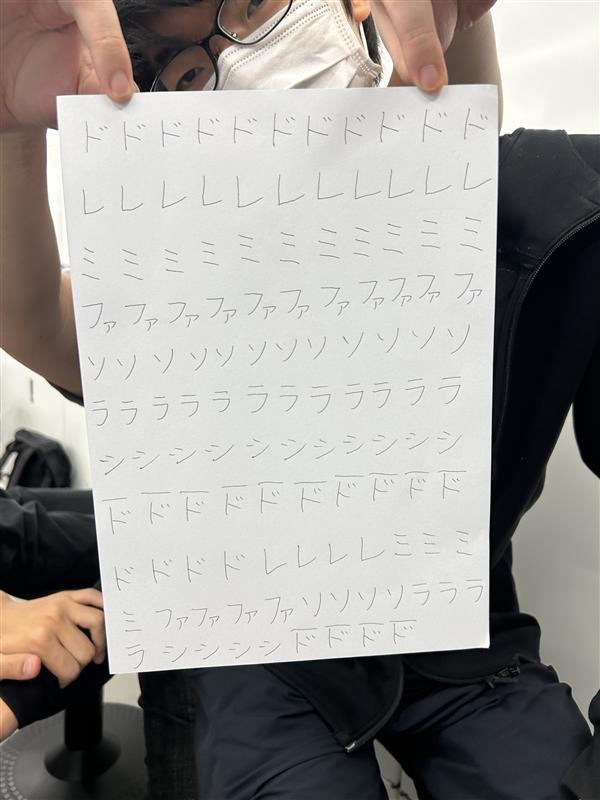 ドドドドドドドドドドド
レレレレレレレレレレレ
ミミミミミミミミミミミ
ファファファファファファファファファファファ
ソソソソソソソソソソソソ
ララララララララララララ
シシシシシシシシシシシ
ド̅ド̅ド̅ド̅ド̅ド̅ド̅ド̅ド̅ド̅
ドドドドレレレレミミミ
ミファファファファソソソソラララ
ラシシシシド̅ド̅ド̅ド̅